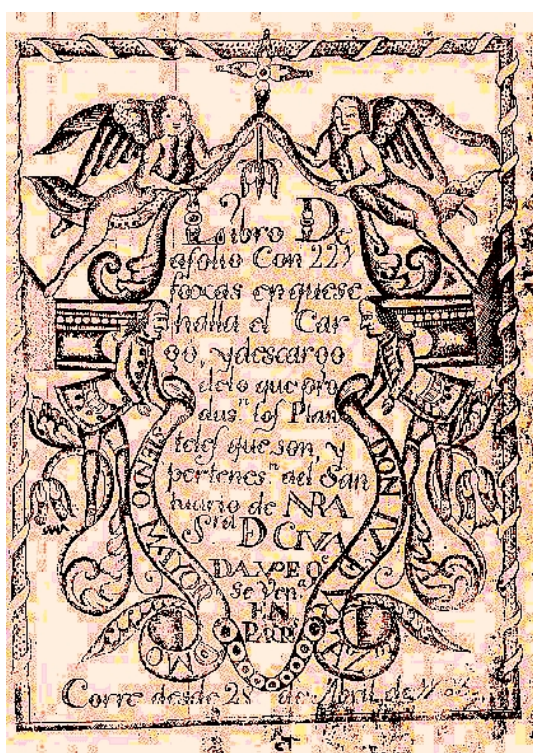 Libro De
afolio Con 22
foxas enquese
halla el Car
go, ydescargo
delo que pro
dus.n los Plan
teles que son, y
pertenes.n ael San
tuario de NRA
Sra D CIVA
se Ven
EN
SIENDO MAYOR
MO
DON
Corre desde 28 de Abril de